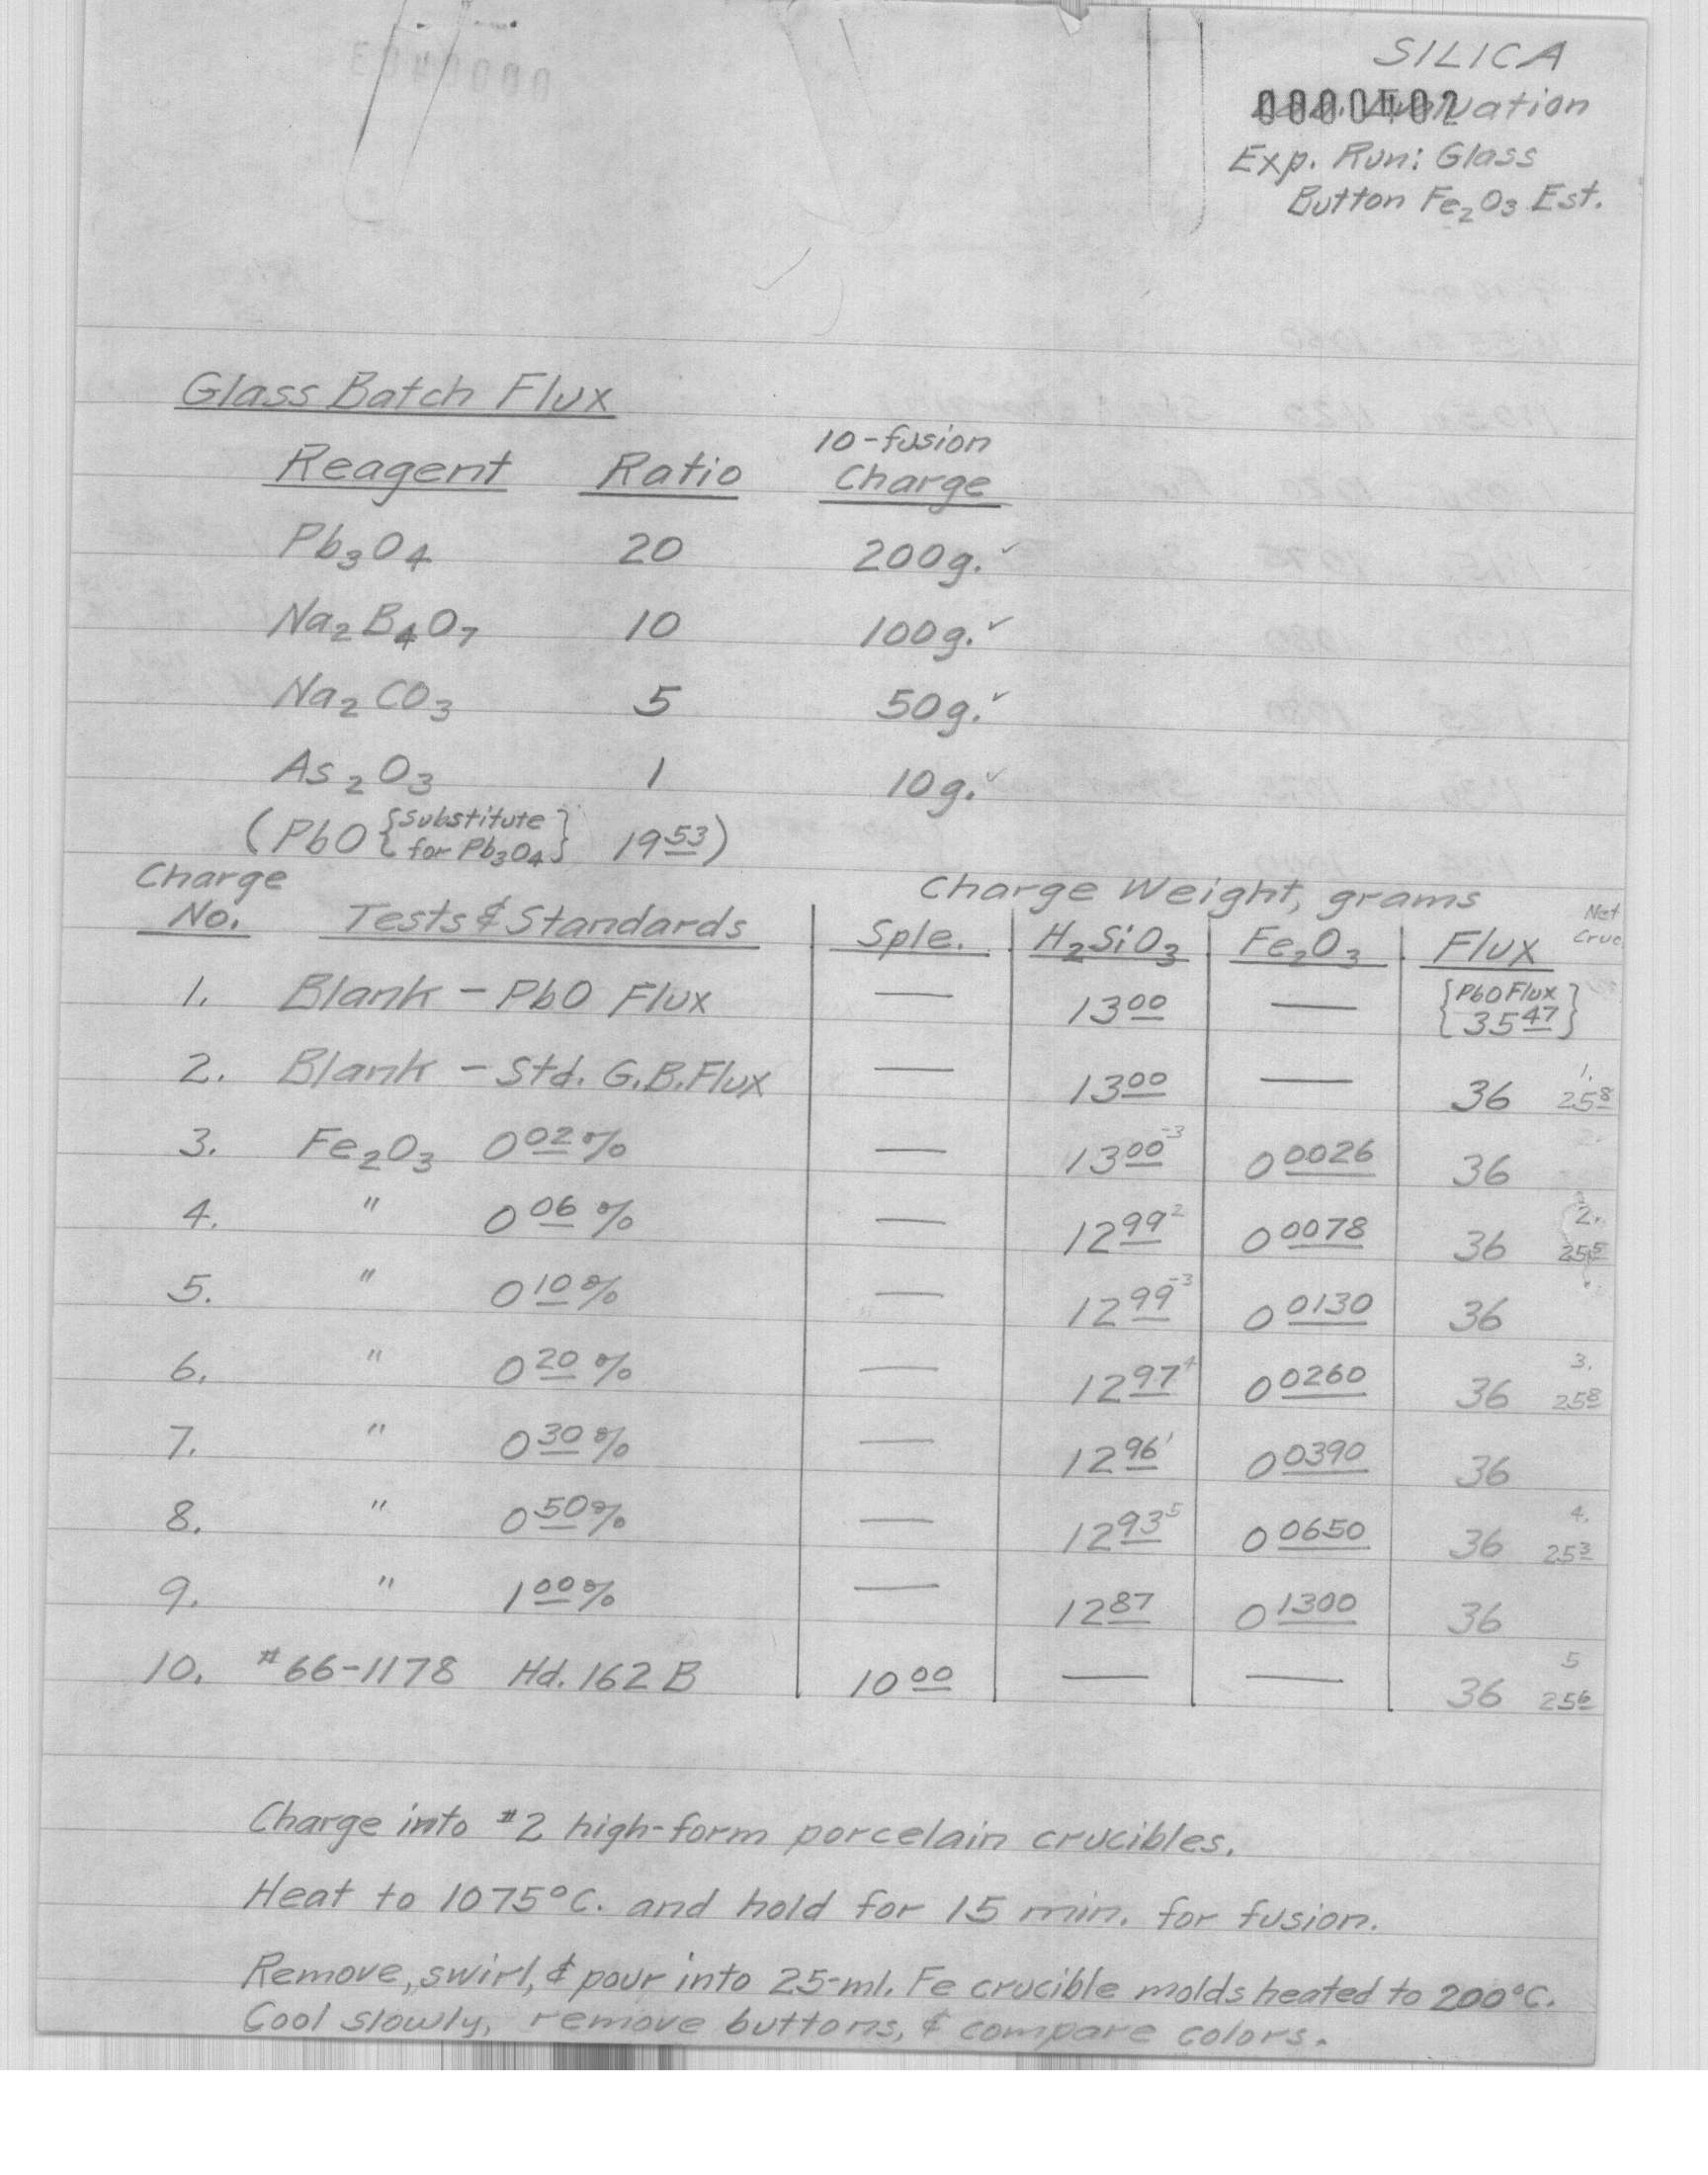 SILICA
0000402
Exp. Run: Glass
Button Fe2O3 Est.
Glass Batch Flux
10-fusion
Reagent Ratio Charge
Pb3O4 20 200g. ✓
Na2B4O7 10 100g. ✓
Na2CO3 5 50g. ✓
As2O3 1 10g. ✓
(PbO {Substitute for Pb3O4} 19 53)
Charge Charge Weight, grams Net
No. Tests & Standards Sple. H2SiO3 Fe2O3 Flux Cruc.
1. Blank - PbO Flux — 13 00 — {PbO Flux 35 47}
2. Blank - Std. G.B. Flux — 13 00 — 36 1. 25 8
3. Fe2O3 0 02 % — 13 00 -3 0 0026 36
4. " 0 06 % — 12 99 2 0 0078 36 2. 25 5
5. " 0 10 % — 12 99 -3 0 0130 36
6. " 0 20 % — 12 97 4 0 0260 36 3. 25 8
7. " 0 30 % — 12 96 1 0 0390 36
8. " 0 50 % — 12 93 5 0 0650 36 4. 25 3
9. " 1 00 % — 12 87 0 1300 36
10. #66-1178 Hd. 162 B 10 00 — — 36 5 25 6
Charge into #2 high-form porcelain crucibles.
Heat to 1075°C. and hold for 15 min. for fusion.
Remove, swirl, & pour into 25-ml. Fe crucible molds heated to 200°C.
Cool slowly, remove buttons, & compare colors.